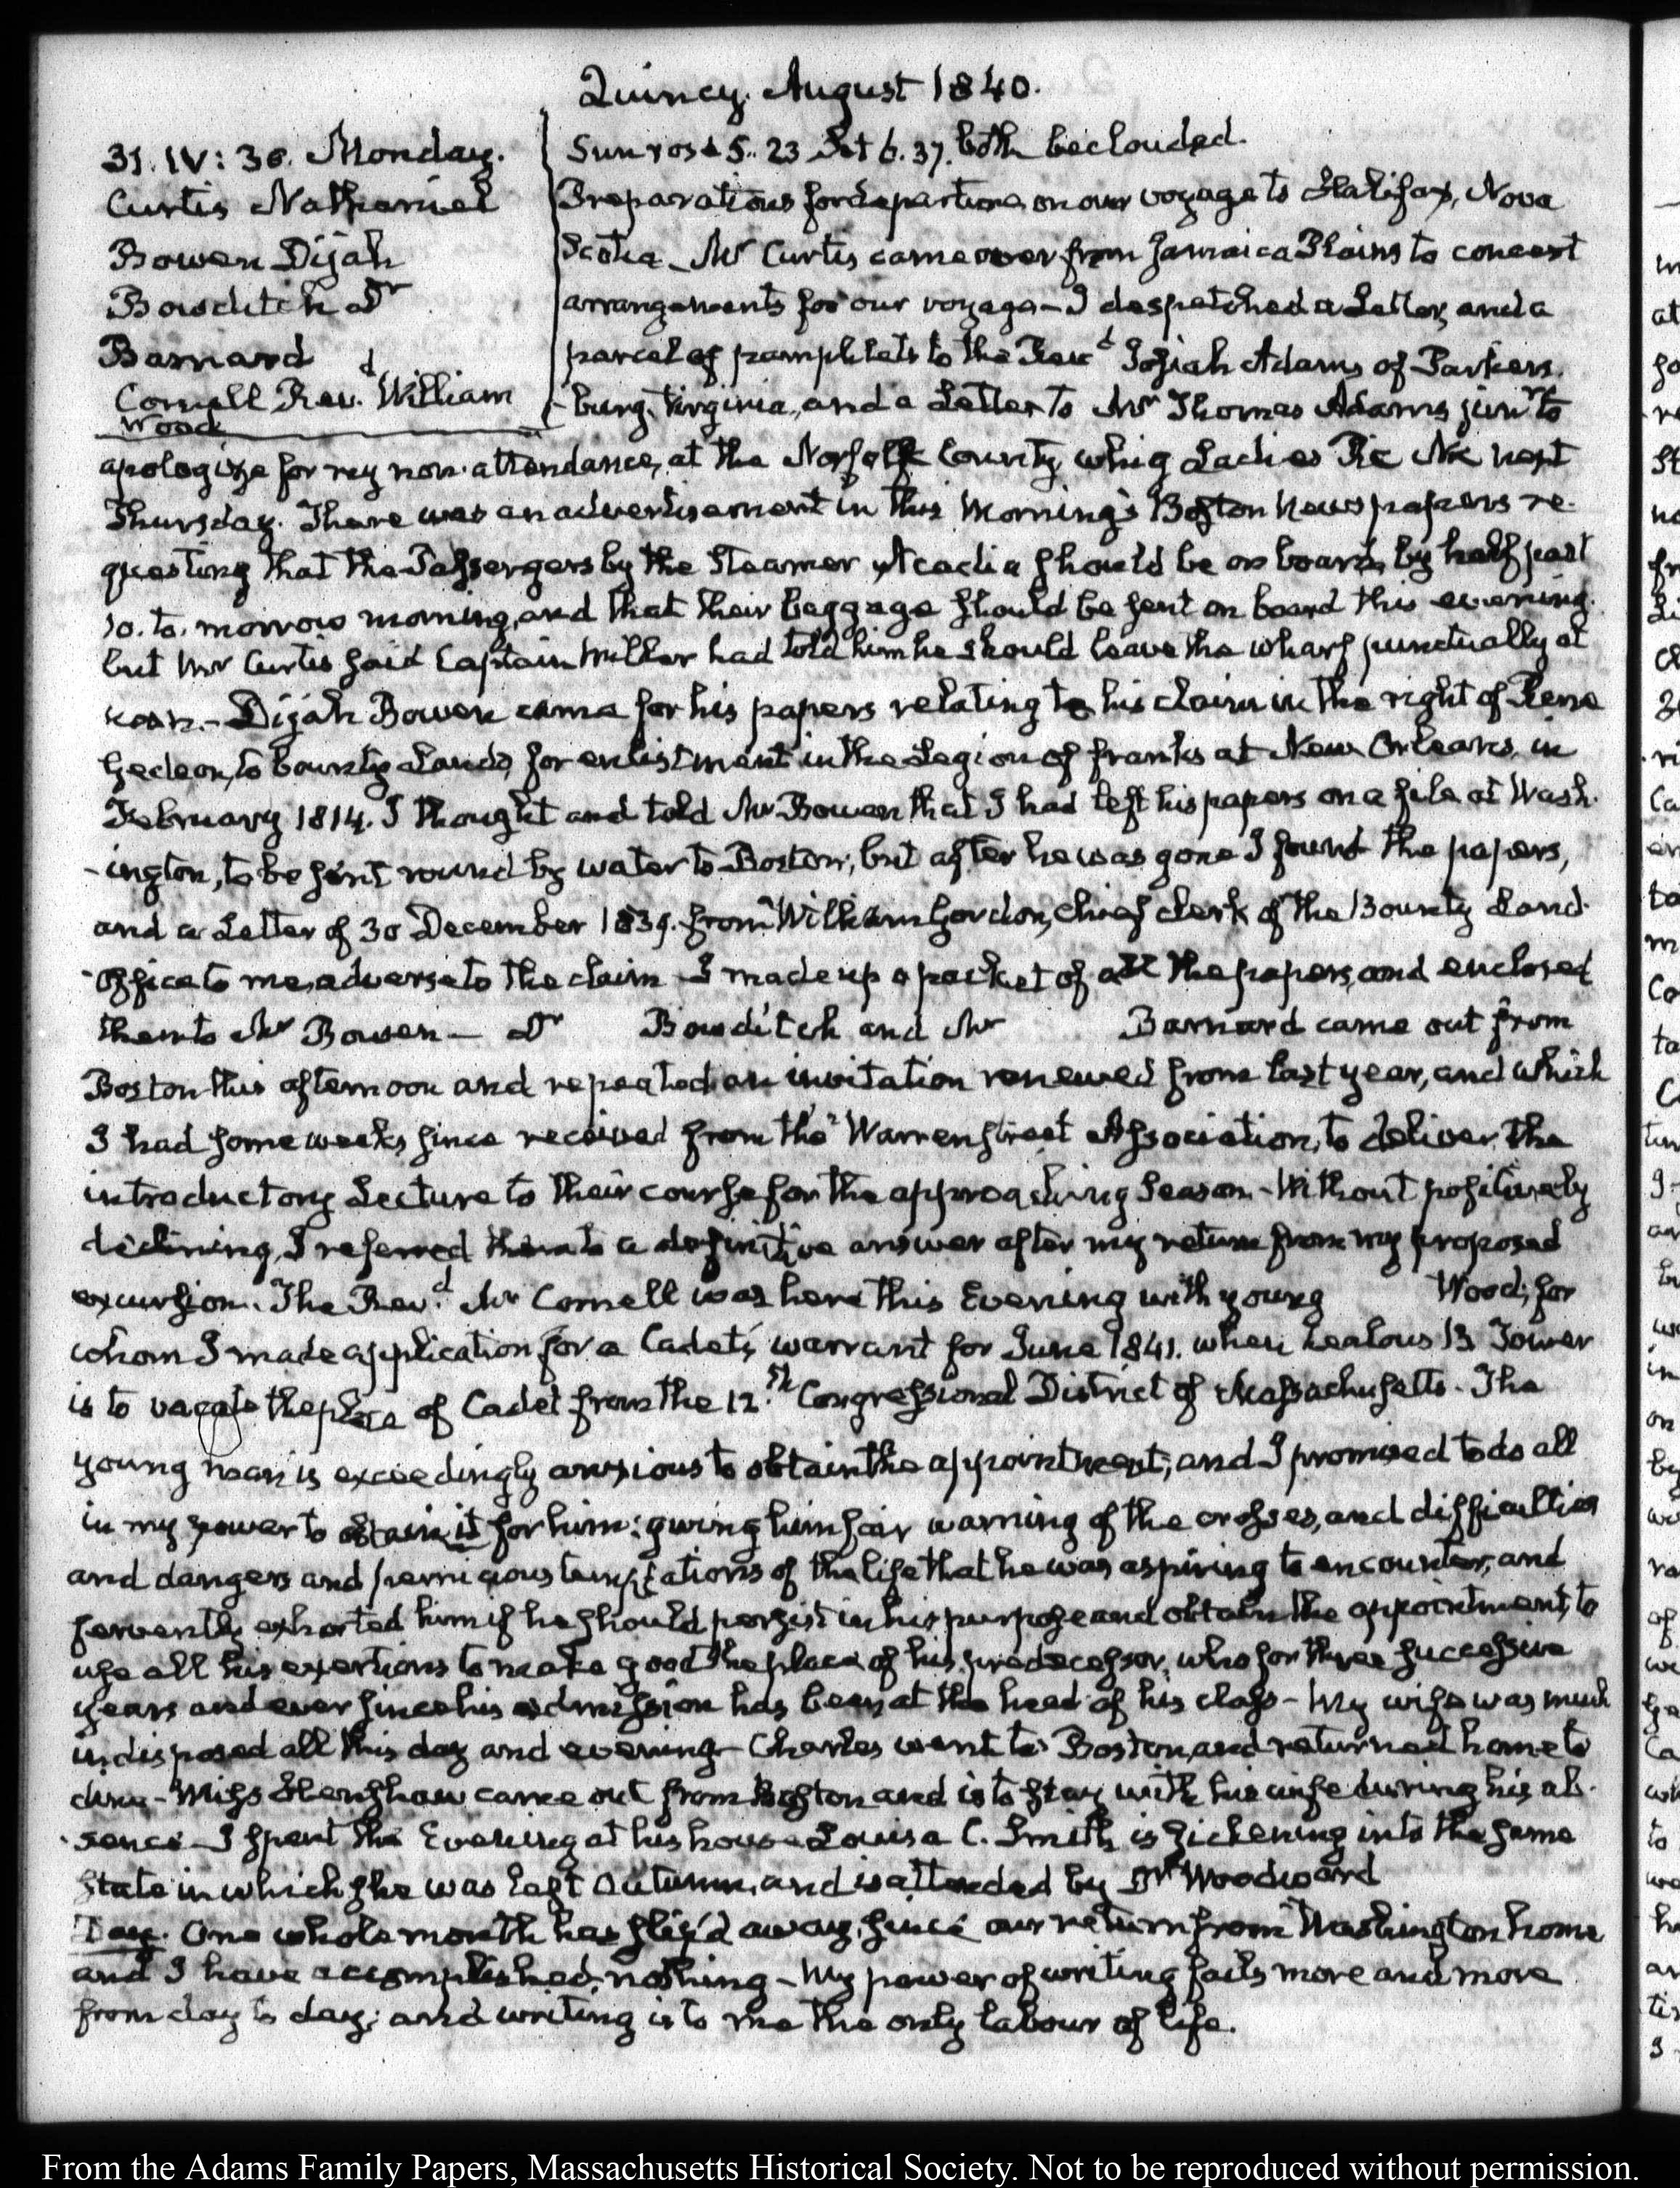 Quincy. August 1840.
31. IV: 30. Monday.
Curtis Nathaniel
Bowen Dijah
Bowditch Dr
Barnard
Cornell Revd. William
Wood
Sun rose 5. 23 Set 6. 37. both beclouded.
Preparations for departure on our voyage to Halifax, Nova
Scotia – Mr Curtis came over from Jamaica Plains to concert
arrangements for our voyage – I despatched a Letter, and a
parcel of pamphlets to the Revd Josiah Adams of Parkers-
-burg, Virginia, and a Letter to Mr Thomas Adams junr. to
apologize for my non-attendance, at the Norfolk County whig Ladies Pic Nic next
Thursday. There was an advertisement in this Morning's Boston Newspapers re-
questing that the Passengers by the Steamer Acadia should be on board by half past
10. to-morrow morning, and that their baggage should be sent on board this evening.
but Mr Curtis said Captain Miller had told him he should leave the wharf punctually at
noon. – Dijah Bowen came for his papers relating to his claim in the right of Rene
Gedeon, to bounty Lands, for enlistment in the Legion of franks at New Orleans, in
February 1814. I thought and told Mr Bowen that I had left his papers on a file at Wash-
-ington, to be sent round by water to Boston, but after he was gone I found the papers,
and a Letter of 30 December 1839. from William Gordon, chief clerk of the Bounty Land-
-office to me, adverse to the claim – I made up a packet of all the papers, and enclosed
them to Mr Bowen – Dr Bowditch and Mr Barnard came out from
Boston this afternoon and repeated an invitation renewed from last year, and which
I had some weeks since received from the Warren street Association, to deliver the
introductory Lecture to their course for the approaching Season – Without positively
declining, I referred them to a definitive answer after my return from my proposed
excursion. The Revd. Mr Cornell was here this Evening with young Wood; for
whom I made application for a Cadet's warrant for June 1841. when Zealous B Tower
is to vacate the place of Cadet from the 12.th Congressional District of Massachusetts. The
young man is exceedingly anxious to obtain the appointment, and I promised to do all
in my power to obtain it for him: giving him fair warning of the crosses, and difficulties
and dangers and pernicious temptations of the life that he was aspiring to encounter, and
fervently exhorted him if he should persist in his purpose and obtain the appointment, to
use all his exertions to make good the place of his predecessor, who for three successive
years and ever since his admission has been at the head of his class – My wife was much
indisposed all this day and evening – Charles went to Boston, and returned home to
dine – Miss Henshaw came out from Boston and is to stay with his wife during his ab-
-sence – I spent the Evening at his house Louisa C. Smith is sickening into the same
state in which she was last Autumn, and is attended by Dr Woodward
Day. One whole month has slip'd away, since our return from Washington home
and I have accomplished nothing – My power of writing fails more and more
from day to day; and writing is to me the only labour of life.
From the Adams Family Papers, Massachusetts Historical Society. Not to be reproduced without permission.